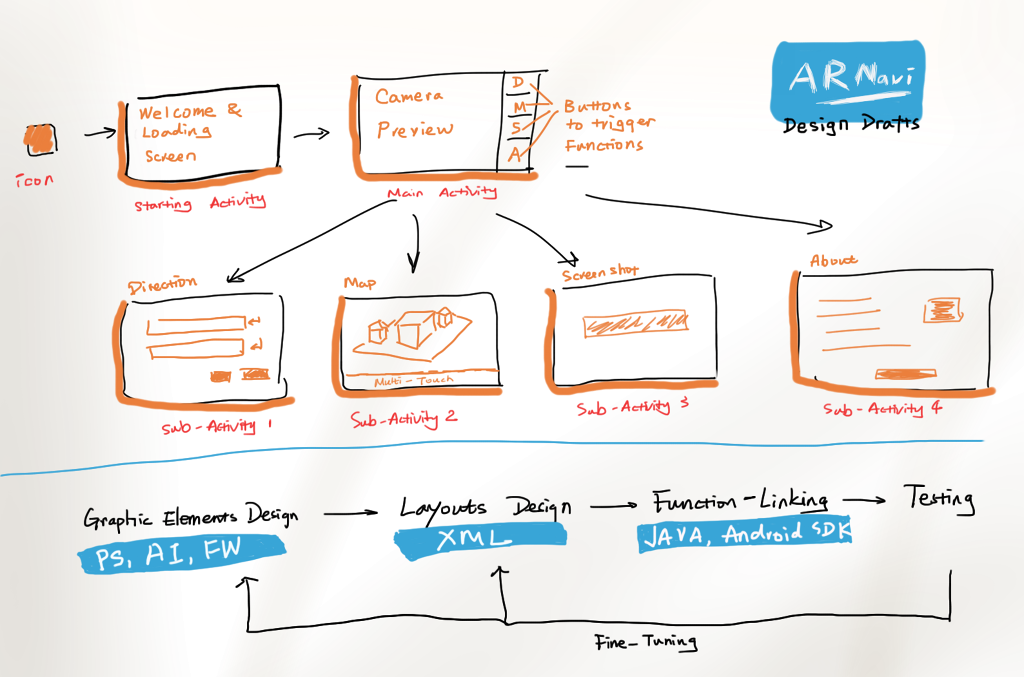 ARNavi
Design Drafts
icon
Welcome &
Loading
Screen
Starting Activity
Camera
Preview
D
M
S
A
Main Activity
Buttons
to trigger
Functions
Direction
Sub-Activity 1
Map
Multi-Touch
Sub-Activity 2
Screenshot
Sub-Activity 3
About
Sub-Activity 4
Graphic Elements Design
PS, AI, FW
Layouts Design
XML
Function-Linking
JAVA, Android SDK
Testing
Fine-Tuning